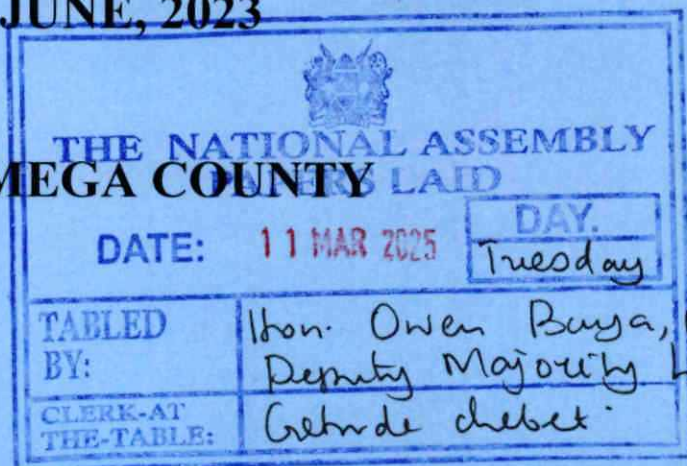 JUNE, 2023
THE NATIONAL ASSEMBLY
PAPERS LAID
MEGA COUNTY
DATE: 11 MAR 2025 DAY.
Tuesday
TABLED BY: Hon. Owen Baya,
Deputy Majority L
CLERK-AT THE-TABLE: Getrude Chebet.